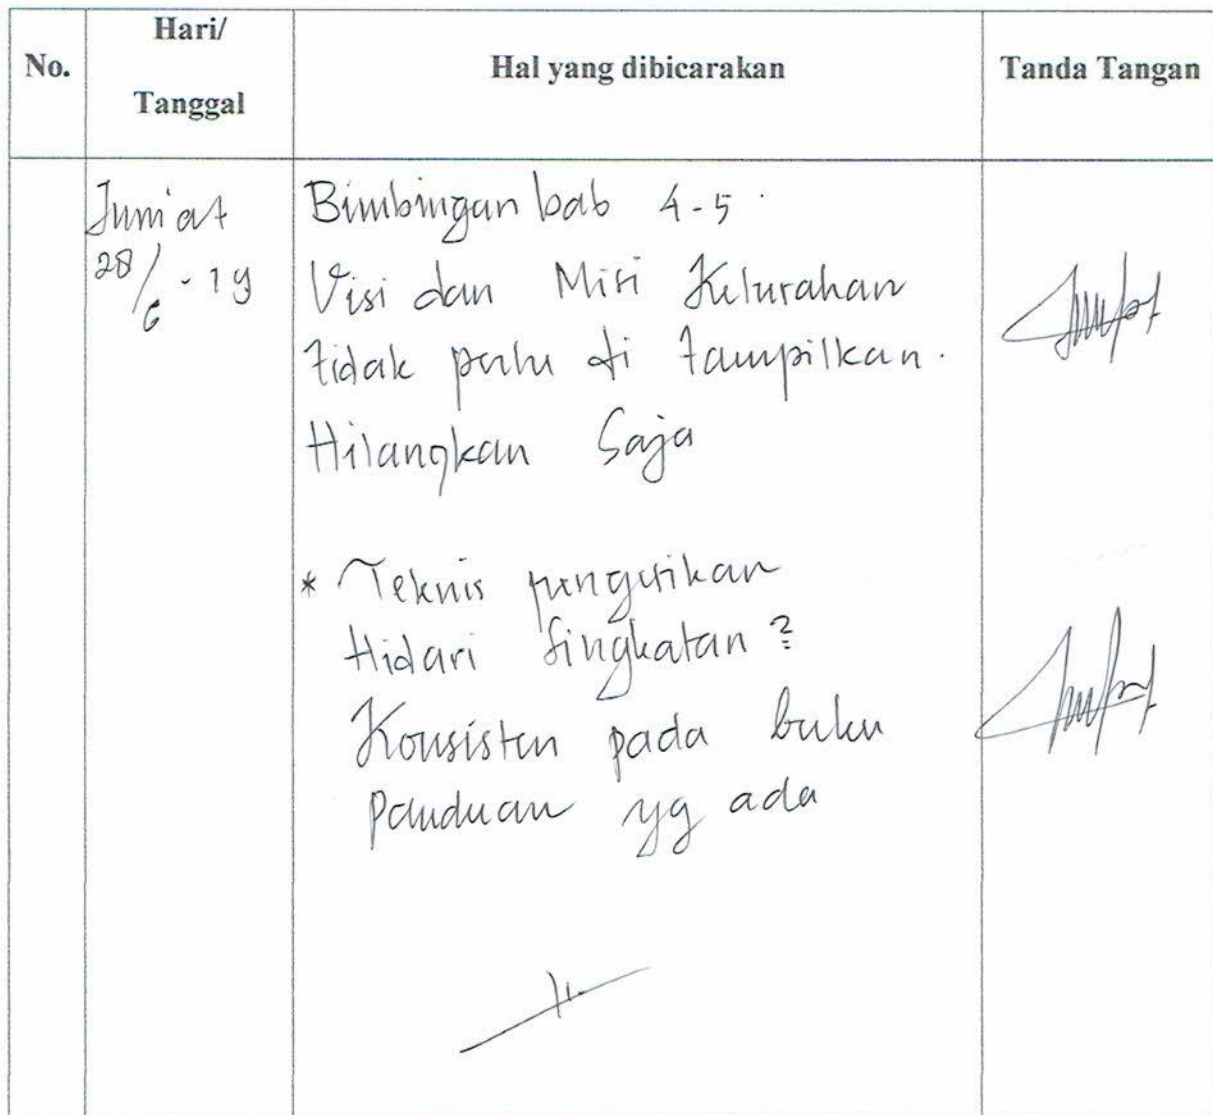 No.
Hari/
Tanggal
Hal yang dibicarakan
Tanda Tangan
Jum'at
28/6 - 19
Bimbingan bab 4-5.
Visi dan Misi Kelurahan
tidak perlu di tampilkan.
Hilangkan Saja
* Teknis pengetikan
Hidari Singkatan?
Konsisten pada buku
Panduan yg ada